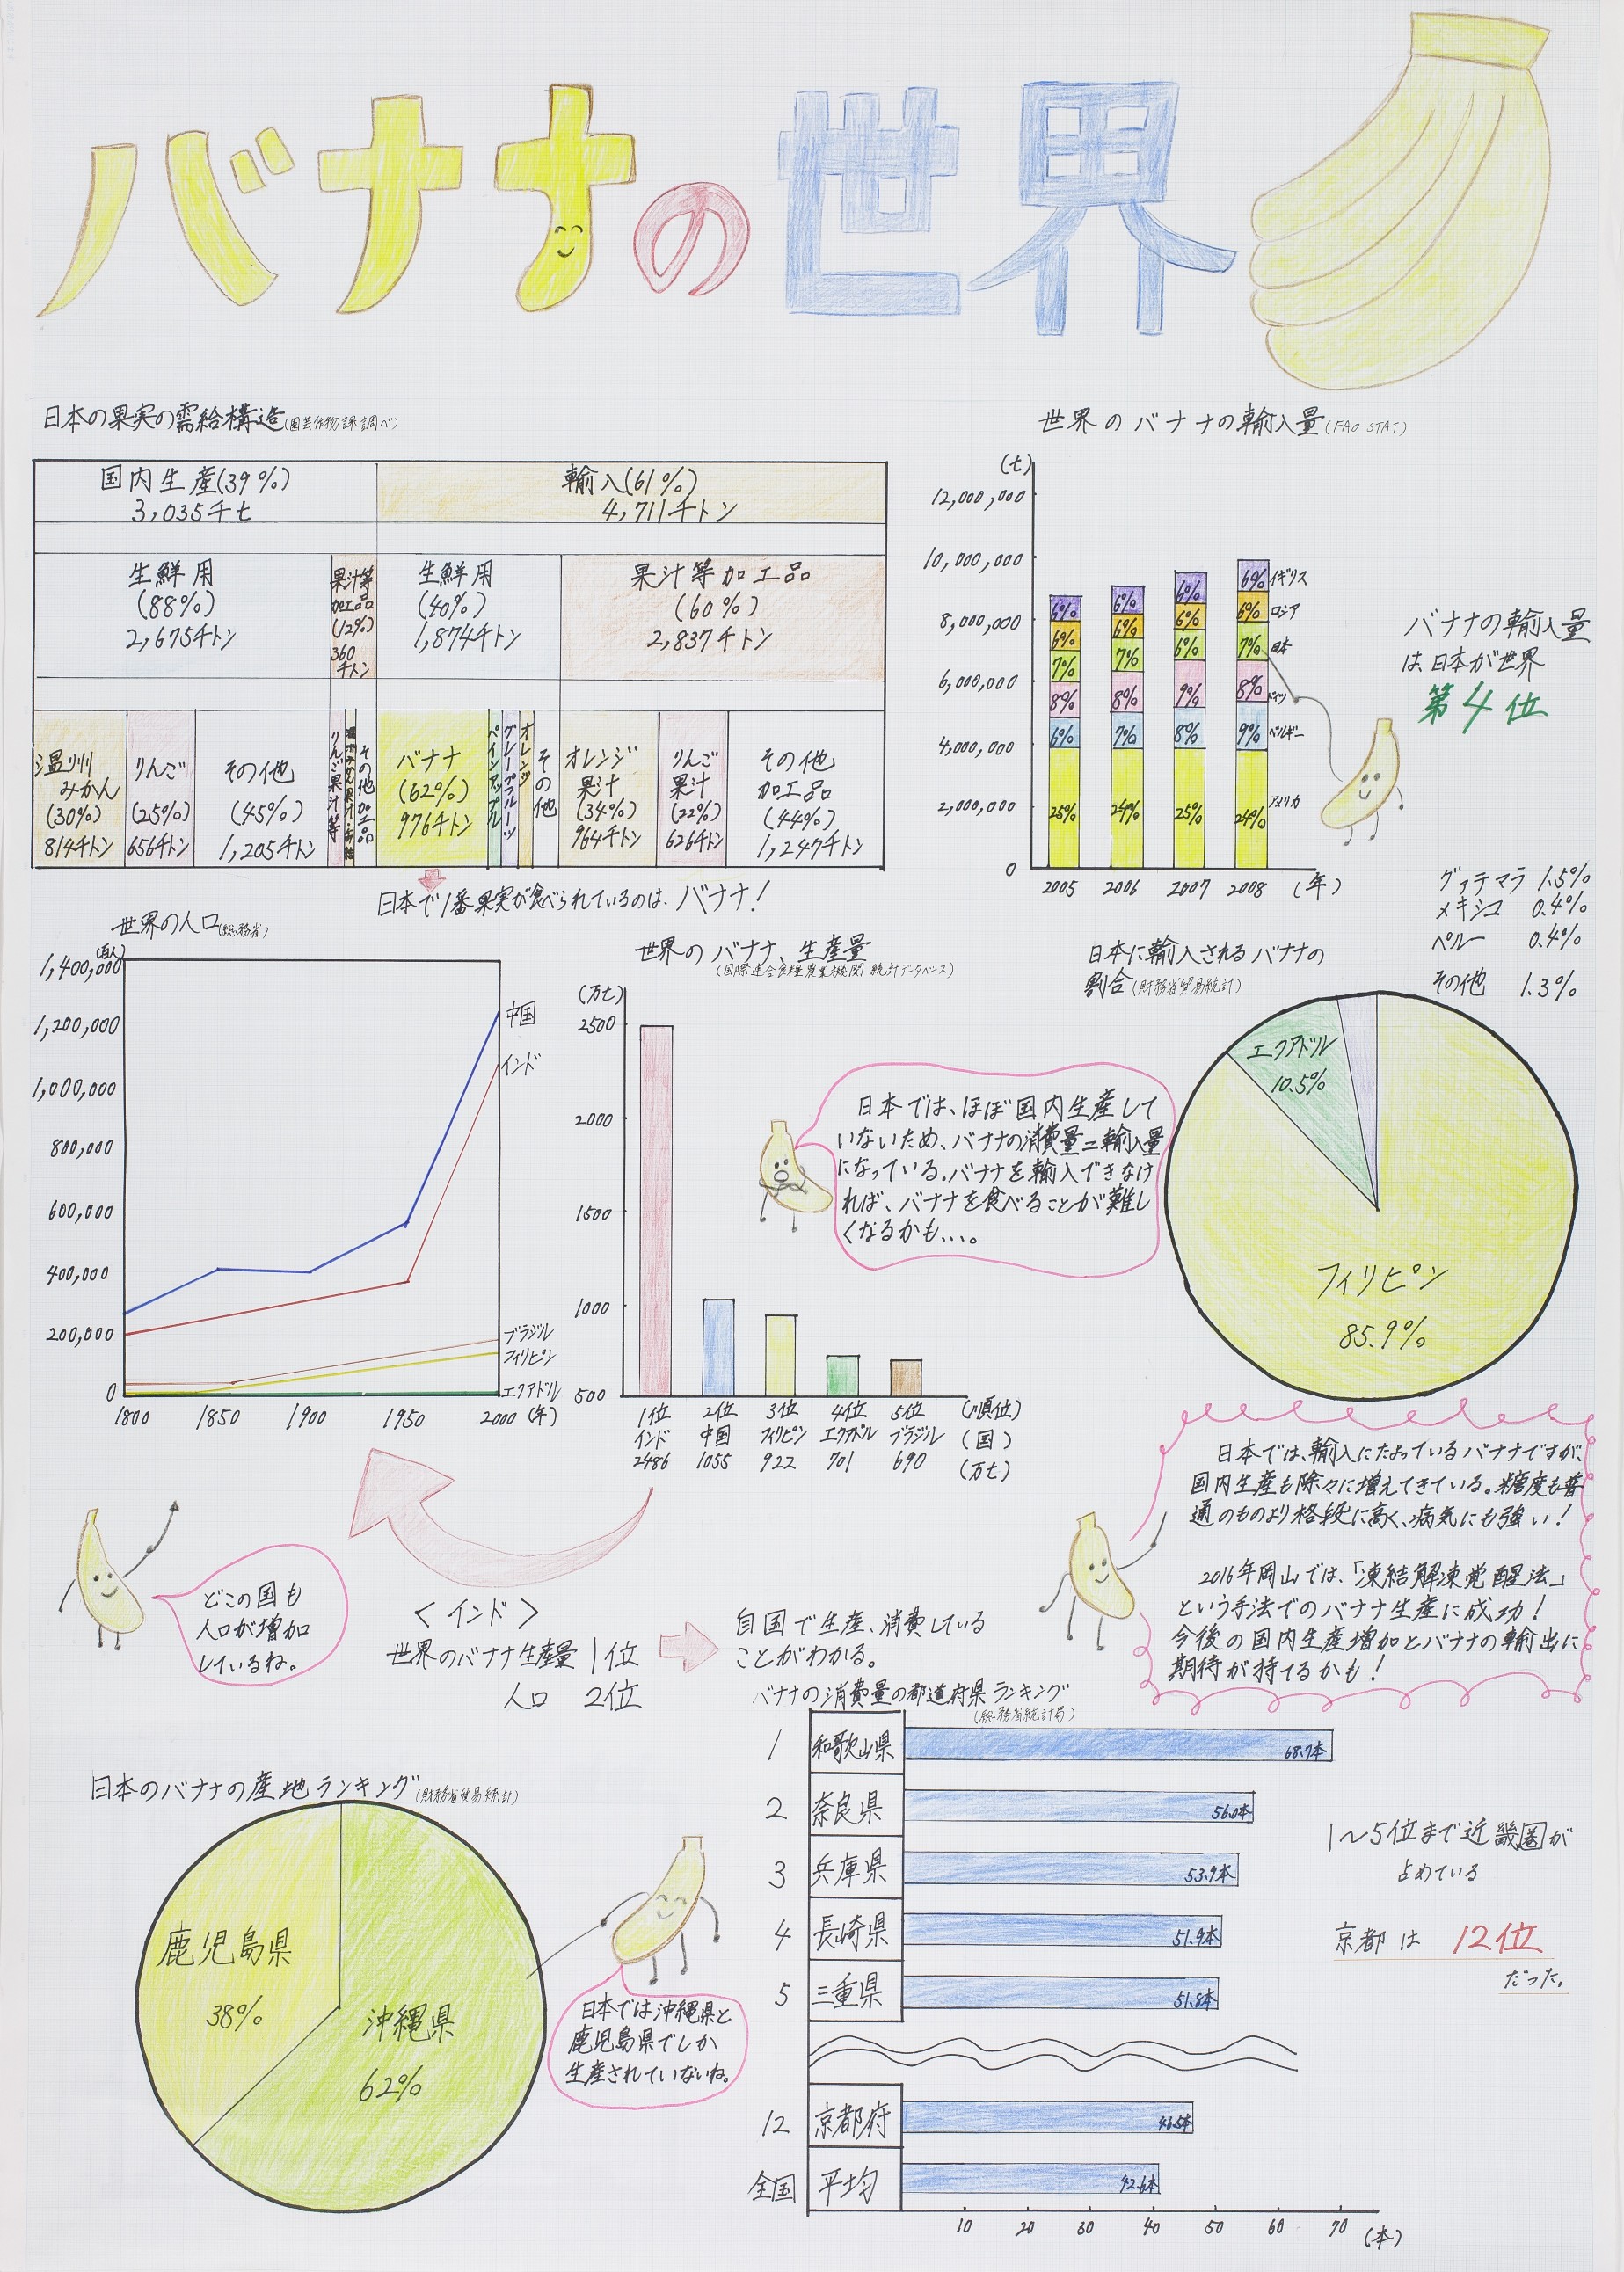 バナナの世界
日本の果実の需給構造(園芸作物課調べ)
国内生産(39%)
3,035千t
輸入(61%)
4,711千トン
生鮮用
(88%)
2,675千トン
果汁等
加工品
(12%)
360
千トン
生鮮用
(40%)
1,874千トン
果汁等加工品
(60%)
2,837千トン
温州
みかん
(30%)
814千トン
りんご
(25%)
656千トン
その他
(45%)
1,205千トン
りんご果汁等
その他加工品
バナナ
(62%)
976千トン
パインアップル
グレープフルーツ
オレンジ
その他
オレンジ
果汁
(34%)
964千トン
りんご
果汁
(22%)
626千トン
その他
加工品
(44%)
1,247千トン
日本で1番果実が食べられているのは、バナナ!
世界のバナナの輸入量(FAO STAT)
(t)
12,000,000
10,000,000
8,000,000
6,000,000
4,000,000
2,000,000
0
6%
6%
7%
8%
6%
25%
6%
6%
7%
8%
7%
24%
6%
6%
6%
9%
8%
25%
6%
6%
7%
8%
9%
24%
イギリス
ロシア
日本
ドイツ
ベルギー
アメリカ
2005 2006 2007 2008 (年)
バナナの輸入量
は日本が世界
第4位
世界の人口(総務省)
(百人)
1,400,000
1,200,000
1,000,000
800,000
600,000
400,000
200,000
0
中国
インド
ブラジル
フィリピン
エクアドル
1800 1850 1900 1950 2000 (年)
世界のバナナ、生産量
(国際連合食糧農業機関 統計データベース)
(万t)
2500
2000
1500
1000
500
1位 2位 3位 4位 5位 (順位)
インド 中国 フィリピン エクアドル ブラジル (国)
2486 1055 922 701 690 (万t)
日本に輸入されるバナナの
割合(財務省貿易統計)
グァテマラ 1.5%
メキシコ 0.4%
ペルー 0.4%
その他 1.3%
エクアドル
10.5%
フィリピン
85.9%
日本では、ほぼ国内生産して
いないため、バナナの消費量=輸入量
になっている。バナナを輸入できなけ
れば、バナナを食べることが難し
くなるかも...。
日本では、輸入にたよっているバナナですが、
国内生産も除々に増えてきている。糖度も普
通のものより格段に高く、病気にも強い!
2016年岡山では、「凍結解凍覚醒法」
という手法でのバナナ生産に成功!
今後の国内生産増加とバナナの輸出に
期待が持てるかも!
どこの国も
人口が増加
しているね。
<インド>
世界のバナナ生産量 1位
人口 2位
自国で生産、消費している
ことがわかる。
バナナの消費量の都道府県ランキング
(総務省統計局)
1 和歌山県 68.7本
2 奈良県 56.0本
3 兵庫県 53.9本
4 長崎県 51.9本
5 三重県 51.8本
12 京都府 46.5本
全国 平均 42.6本
10 20 30 40 50 60 70 (本)
1~5位まで近畿圏が
占めている
京都は 12位
だった。
日本のバナナの産地ランキング(財務省貿易統計)
鹿児島県
38%
沖縄県
62%
日本では沖縄県と
鹿児島県でしか
生産されていないね。